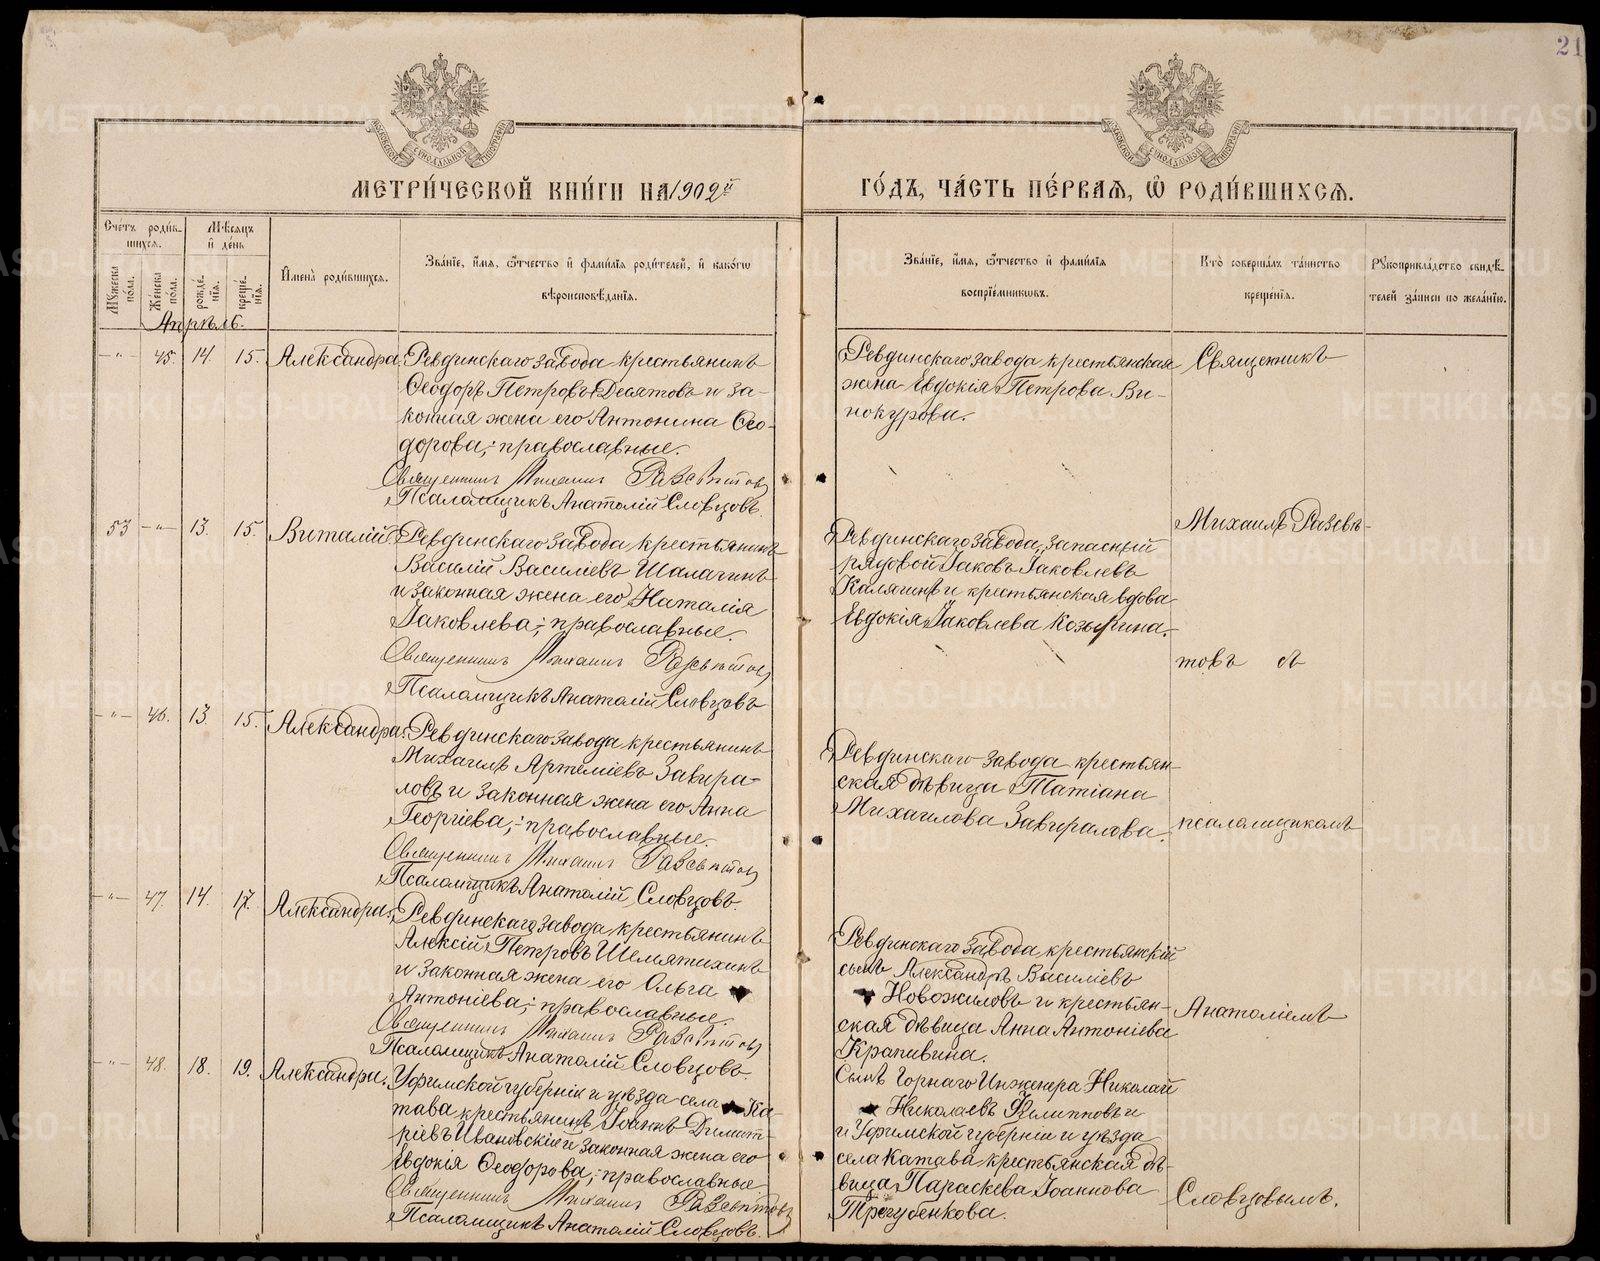 21
МЕТРИ́ЧЕСКОЙ КНИ́ГИ НА 1902й
ГО́ДЪ, ЧА́СТЬ ПЕ́РВАѦ, Ѡ РОДИ́ВШИХСѦ.
Сче́тъ роди́в-
шихсѧ.
Мѣ́сѧцъ
и де́нь
Му́жеска
по́ла.
Же́нска
по́ла.
рожде́-
нїѧ.
креще́-
нїѧ.
Имена̀ роди́вшихсѧ.
Зва́нїе, и́мѧ, ѻ́тчество и фами́лїѧ роди́телей, и како́гѡ
вѣроисповѣ́данїѧ.
Зва́нїе, и́мѧ, ѻ́тчество и фами́лїѧ
воспрїе́мникѡвъ.
Кто̀ соверша́лъ та́инство
креще́нїѧ.
Рукоприкла́дство свидѣ́-
телей за́писи по жела́нїю.
Апрѣль.
-"- 45. 14. 15. Александра. Ревдинскаго завода крестьянинъ
Ѳеодоръ Петровъ Десятовъ и за-
конная жена его Антонина Ѳео-
дорова, православные.
Священникъ Михаилъ Развѣтовъ
Псаломщикъ Анатолій Словцовъ.
Ревдинскаго завода крестьянская
жена Евдокія Петрова Ви-
нокурова.
Священникъ
53 -"- 13. 15. Виталій. Ревдинскаго завода крестьянинъ
Василій Василіевъ Шалагинъ
и законная жена его Наталія
Іаковлева, православные.
Священникъ Михаилъ Развѣтовъ
Псаломщикъ Анатолій Словцовъ
Ревдинскаго завода запасный
рядовой Іаковъ Іаковлевъ
Калягинъ и крестьянская вдова
Евдокія Іаковлева Козырина.
Михаилъ Развѣ-
товъ съ
-"- 46. 13. 15. Александра. Ревдинскаго завода крестьянинъ
Михаилъ Артеміевъ Завира-
ловъ и законная жена его Анна
Георгіева, православные.
Священникъ Михаилъ Развѣтовъ
Псаломщикъ Анатолій Словцовъ.
Ревдинскаго завода крестьян-
ская дѣвица Татіана
Михаилова Завиралова.
псаломщикомъ
-"- 47. 14. 17. Александра. Ревдинскаго завода крестьянинъ
Алексій Петровъ Шемятихинъ
и законная жена его Ольга
Антоніева, православные.
Священникъ Михаилъ Развѣтовъ
Псаломщикъ Анатолій Словцовъ.
Ревдинскаго завода крестьянскій
сынъ Александръ Василіевъ
Новожиловъ и крестьян-
ская дѣвица Анна Антоніева
Крапивина.
Анатоліемъ
-"- 48. 18. 19. Александра. Уфимской губерніи и уѣзда села Ка-
тава крестьянинъ Іоаннъ Димит-
ріевъ Ивановскій и законная жена его
Евдокія Ѳеодорова, православные
Священникъ Михаилъ Развѣтовъ
Псаломщикъ Анатолій Словцовъ.
Сынъ Горнаго Инженера Николай
Николаевъ Филипповъ и
и Уфимской губерніи и уѣзда
села Катава крестьянская дѣ-
вица Параскева Іоаннова
Трегубенкова.
Словцовымъ.
METRIKI.GASO-URAL.RU